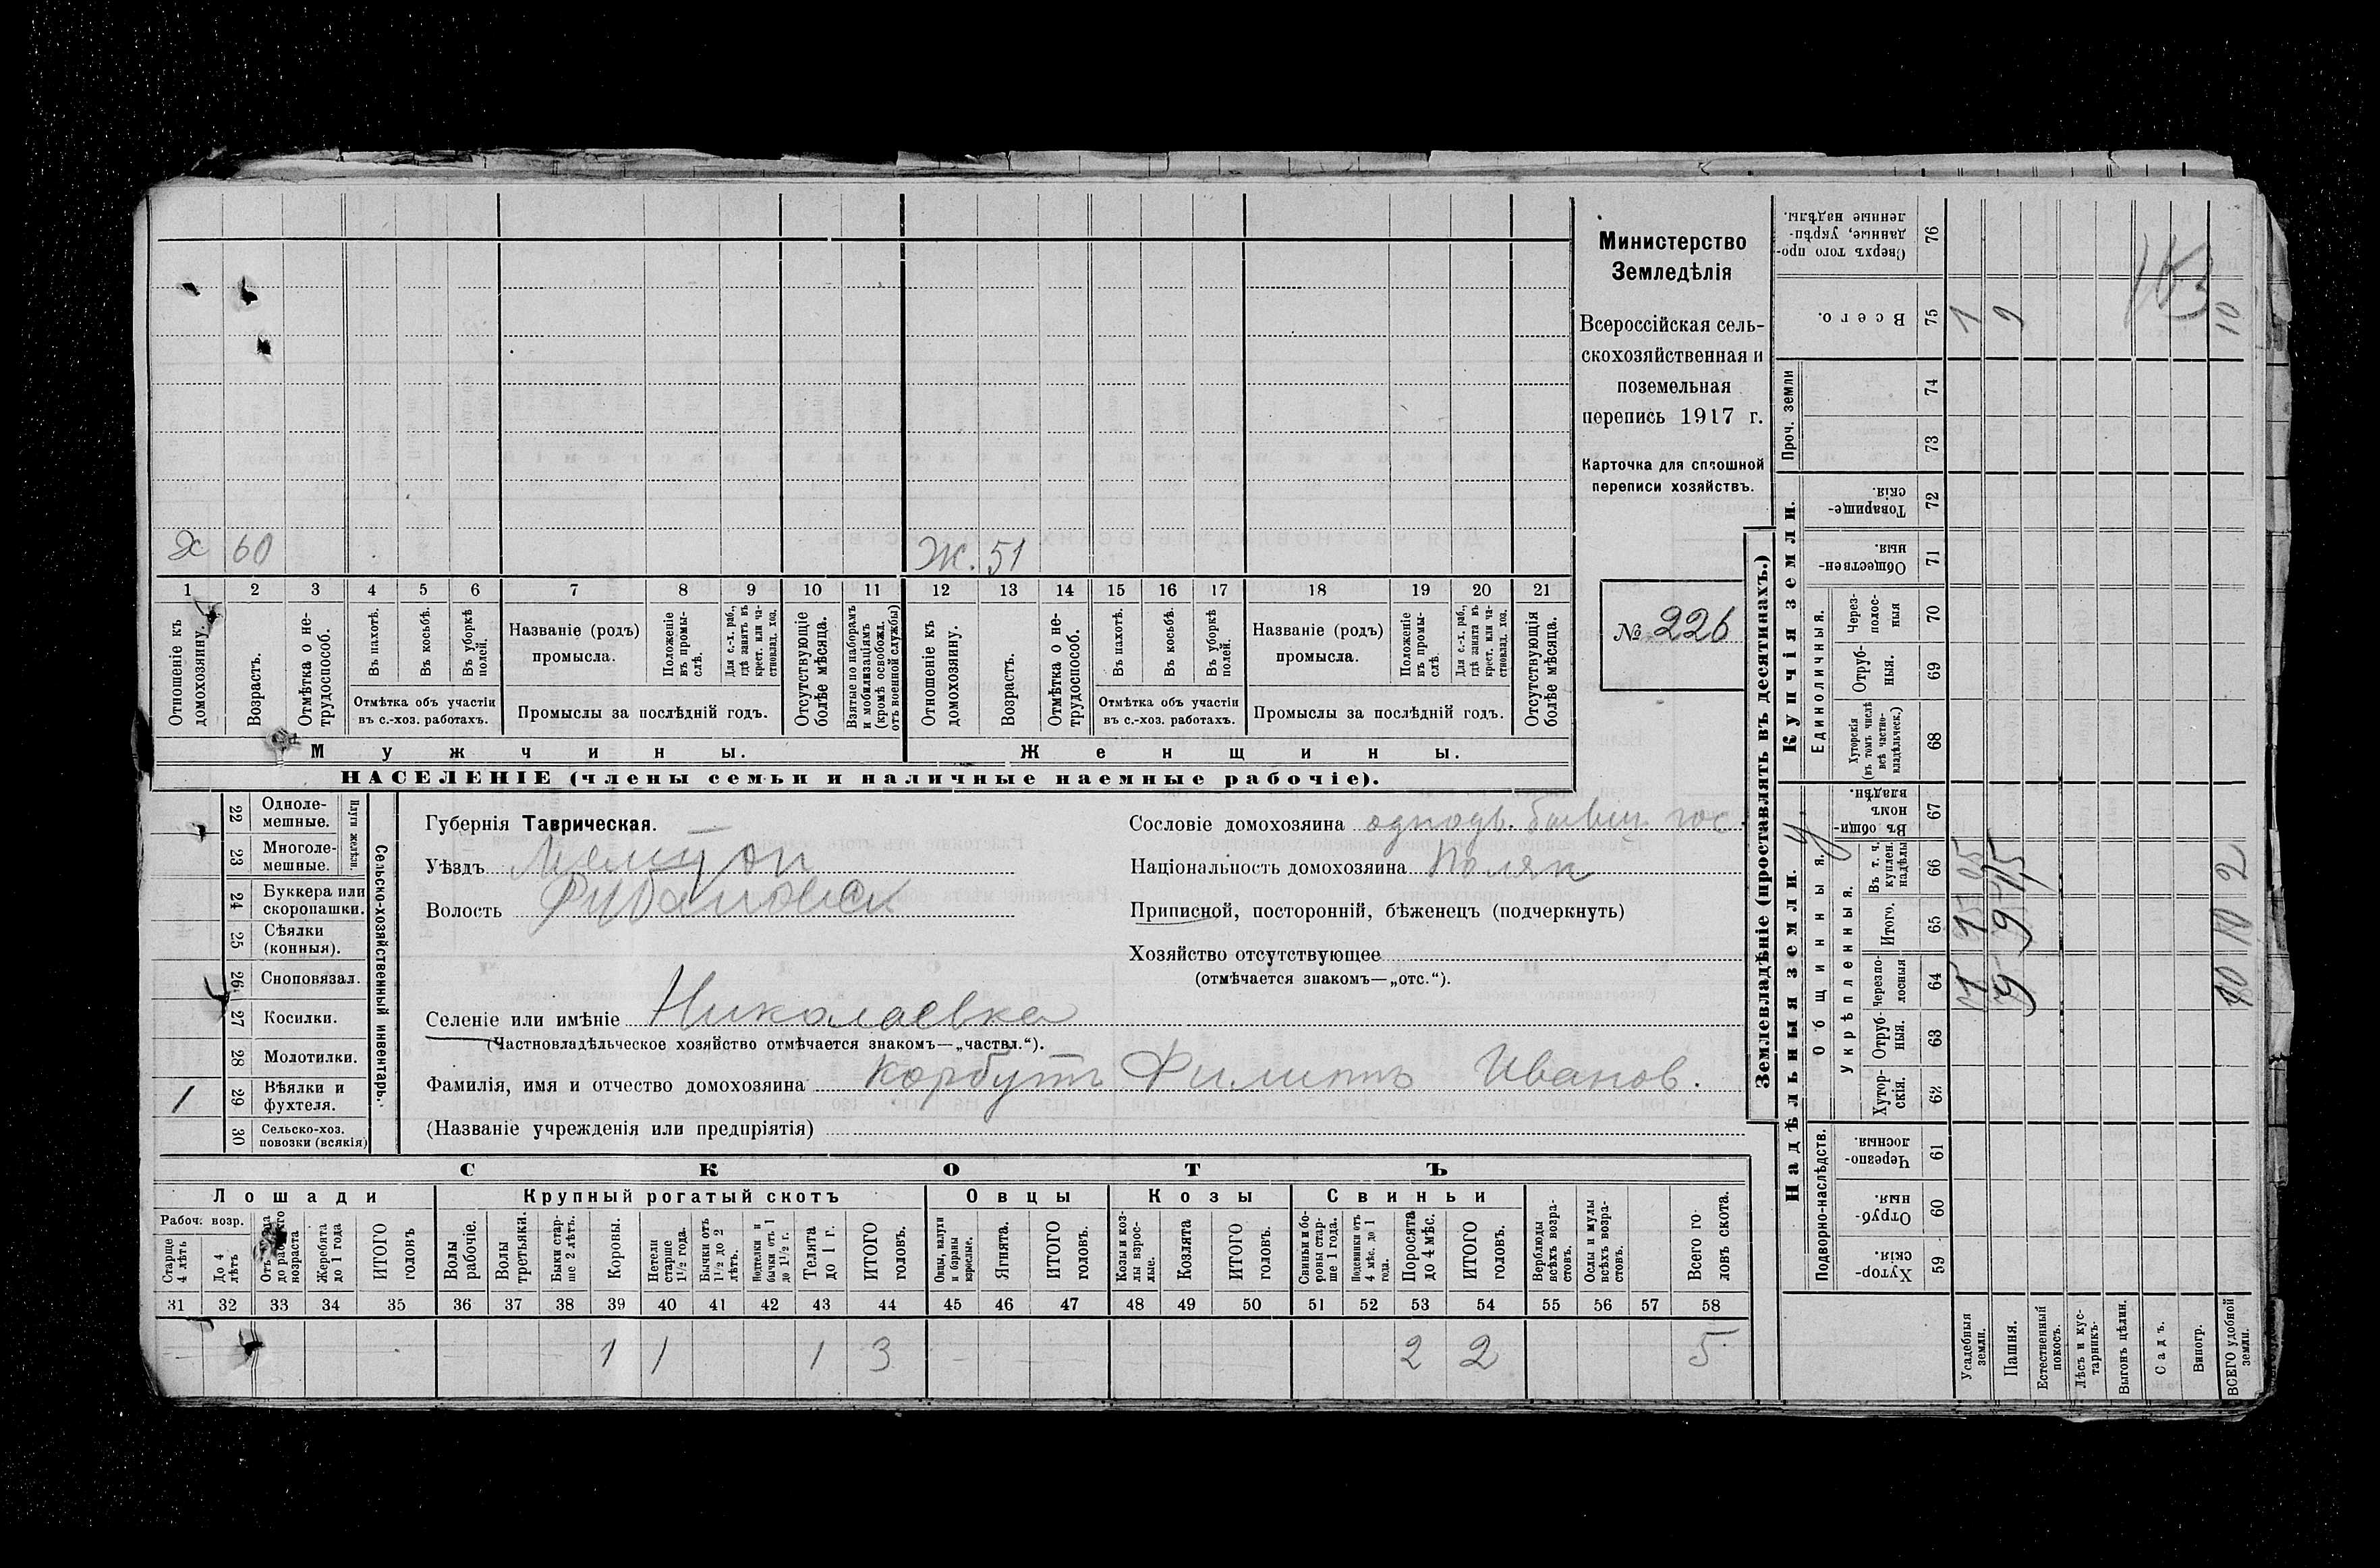 Министерство
Земледѣлія
Всероссійская сель-
скохозяйственная и
поземельная
перепись 1917 г.
Карточка для сплошной
переписи хозяйствъ.
№ 226
Х 60 Ж. 51
1 2 3 4 5 6 7 8 9 10 11 12 13 14 15 16 17 18 19 20 21
Отношеніе къ домохозяину.
Возрастъ.
Отмѣтка о не-трудоспособ.
Въ пахотѣ.
Въ косьбѣ.
Въ уборкѣ полей.
Отмѣтка объ участіи
въ с.-хоз. работахъ.
Названіе (родъ)
промысла.
Положеніе въ промы-слѣ.
Для с.-х. раб., гдѣ занятъ въ крест. или ча-стновлад. хоз.
Промыслы за послѣдній годъ.
Отсутствующіе болѣе мѣсяца.
Взятые по наборамъ и мобилизаціямъ (кромѣ освобожд. отъ военной службы)
Отношеніе къ домохозяину.
Возрастъ.
Отмѣтка о не-трудоспособ.
Въ пахотѣ.
Въ косьбѣ.
Въ уборкѣ полей.
Отмѣтка объ участіи
въ с.-хоз. работахъ.
Названіе (родъ)
промысла.
Положеніе въ промы-слѣ.
Для с.-х. раб., гдѣ занята въ крест. или ча-стновлад. хоз.
Промыслы за послѣдній годъ.
Отсутствующія болѣе мѣсяца.
Мужчины. Женщины.
НАСЕЛЕНІЕ (члены семьи и наличные наемные рабочіе).
Сельско-хозяйственный инвентарь.
Плуги желѣзн.
22 Одноле-мешные.
23 Многоле-мешные.
24 Буккера или скоропашки.
25 Сѣялки (конныя).
26 Сноповязал.
27 Косилки.
28 Молотилки.
1 29 Вѣялки и фухтеля.
30 Сельско-хоз. повозки (всякія)
Губернія Таврическая.
Уѣздъ
Волость Рубановск
Селеніе или имѣніе Николаевка
(Частновладѣльческое хозяйство отмѣчается знакомъ—„частвл.“).
Фамилія, имя и отчество домохозяина Корбутъ Филиппъ Иванов.
(Названіе учрежденія или предпріятія)
Сословіе домохозяина бывш. гос.
Національность домохозяина Поляк
Приписной, посторонній, бѣженецъ (подчеркнуть)
Хозяйство отсутствующее
(отмѣчается знакомъ—„отс.“).
СКОТЪ
Лошади Крупный рогатый скотъ Овцы Козы Свиньи
Рабоч. возр.
Старше 4 лѣтъ
До 4 лѣтъ
Жеребята до 1 года
ИТОГО головъ
Волы рабочіе.
Волы третьяки.
Быки стар-ше 2 лѣтъ.
Коровы.
Нетели старше 1½ года.
Бычки отъ 1½ до 2 лѣтъ.
Подтелки и бычки отъ 1 до 1½ г.
Телята до 1 г.
ИТОГО головъ.
Овцы, валухи и бараны взрослые.
Ягнята.
ИТОГО головъ.
Козы и коз-лы взрос-лые.
Козлята
ИТОГО головъ.
Свиньи и бо-ровы стар-ше 1 года.
Подсвинки отъ 4 мѣс. до 1 года.
Поросята до 4 мѣс.
ИТОГО головъ.
Верблюды всѣхъ возра-стовъ.
Ослы и мулы всѣхъ возра-стовъ.
Всего го-ловъ скота.
31 32 33 34 35 36 37 38 39 40 41 42 43 44 45 46 47 48 49 50 51 52 53 54 55 56 57 58
1 1 1 3 2 2 5
Землевладѣніе (проставлять въ десятинахъ.)
Надѣльныя земли. Купчія земли. Проч. земли
Подворно-наслѣдств.
Общинныя.
Укрѣпленныя.
Единоличныя.
59 Хутор-скія.
60 Отруб-ныя.
61 Черезпо-лосныя
62 Хутор-скія.
63 Отруб-ныя.
64 Черезпо-лосныя
65 Итого.
66 Въ т. ч. куплен. надѣлы
67 Въ общи-номъ владѣн.
68 Хуторскія (въ томъ числѣ всѣ частно-владѣльческ.)
69 Отруб-ныя.
70 Через-полос-ныя
71 Обществен-ныя
72 Товарище-скія.
73
74
75 Всего.
76 Сверхъ того про-данные, укрѣп-ленные надѣлы.
Усадебныя земли. 1
Пашня. 9 9 9
Естественный покосъ.
Лѣсъ и кус-тарникъ.
Выгонъ цѣлин.
Садъ.
Виногр.
ВСЕГО удобной земли. 10 10 2 10